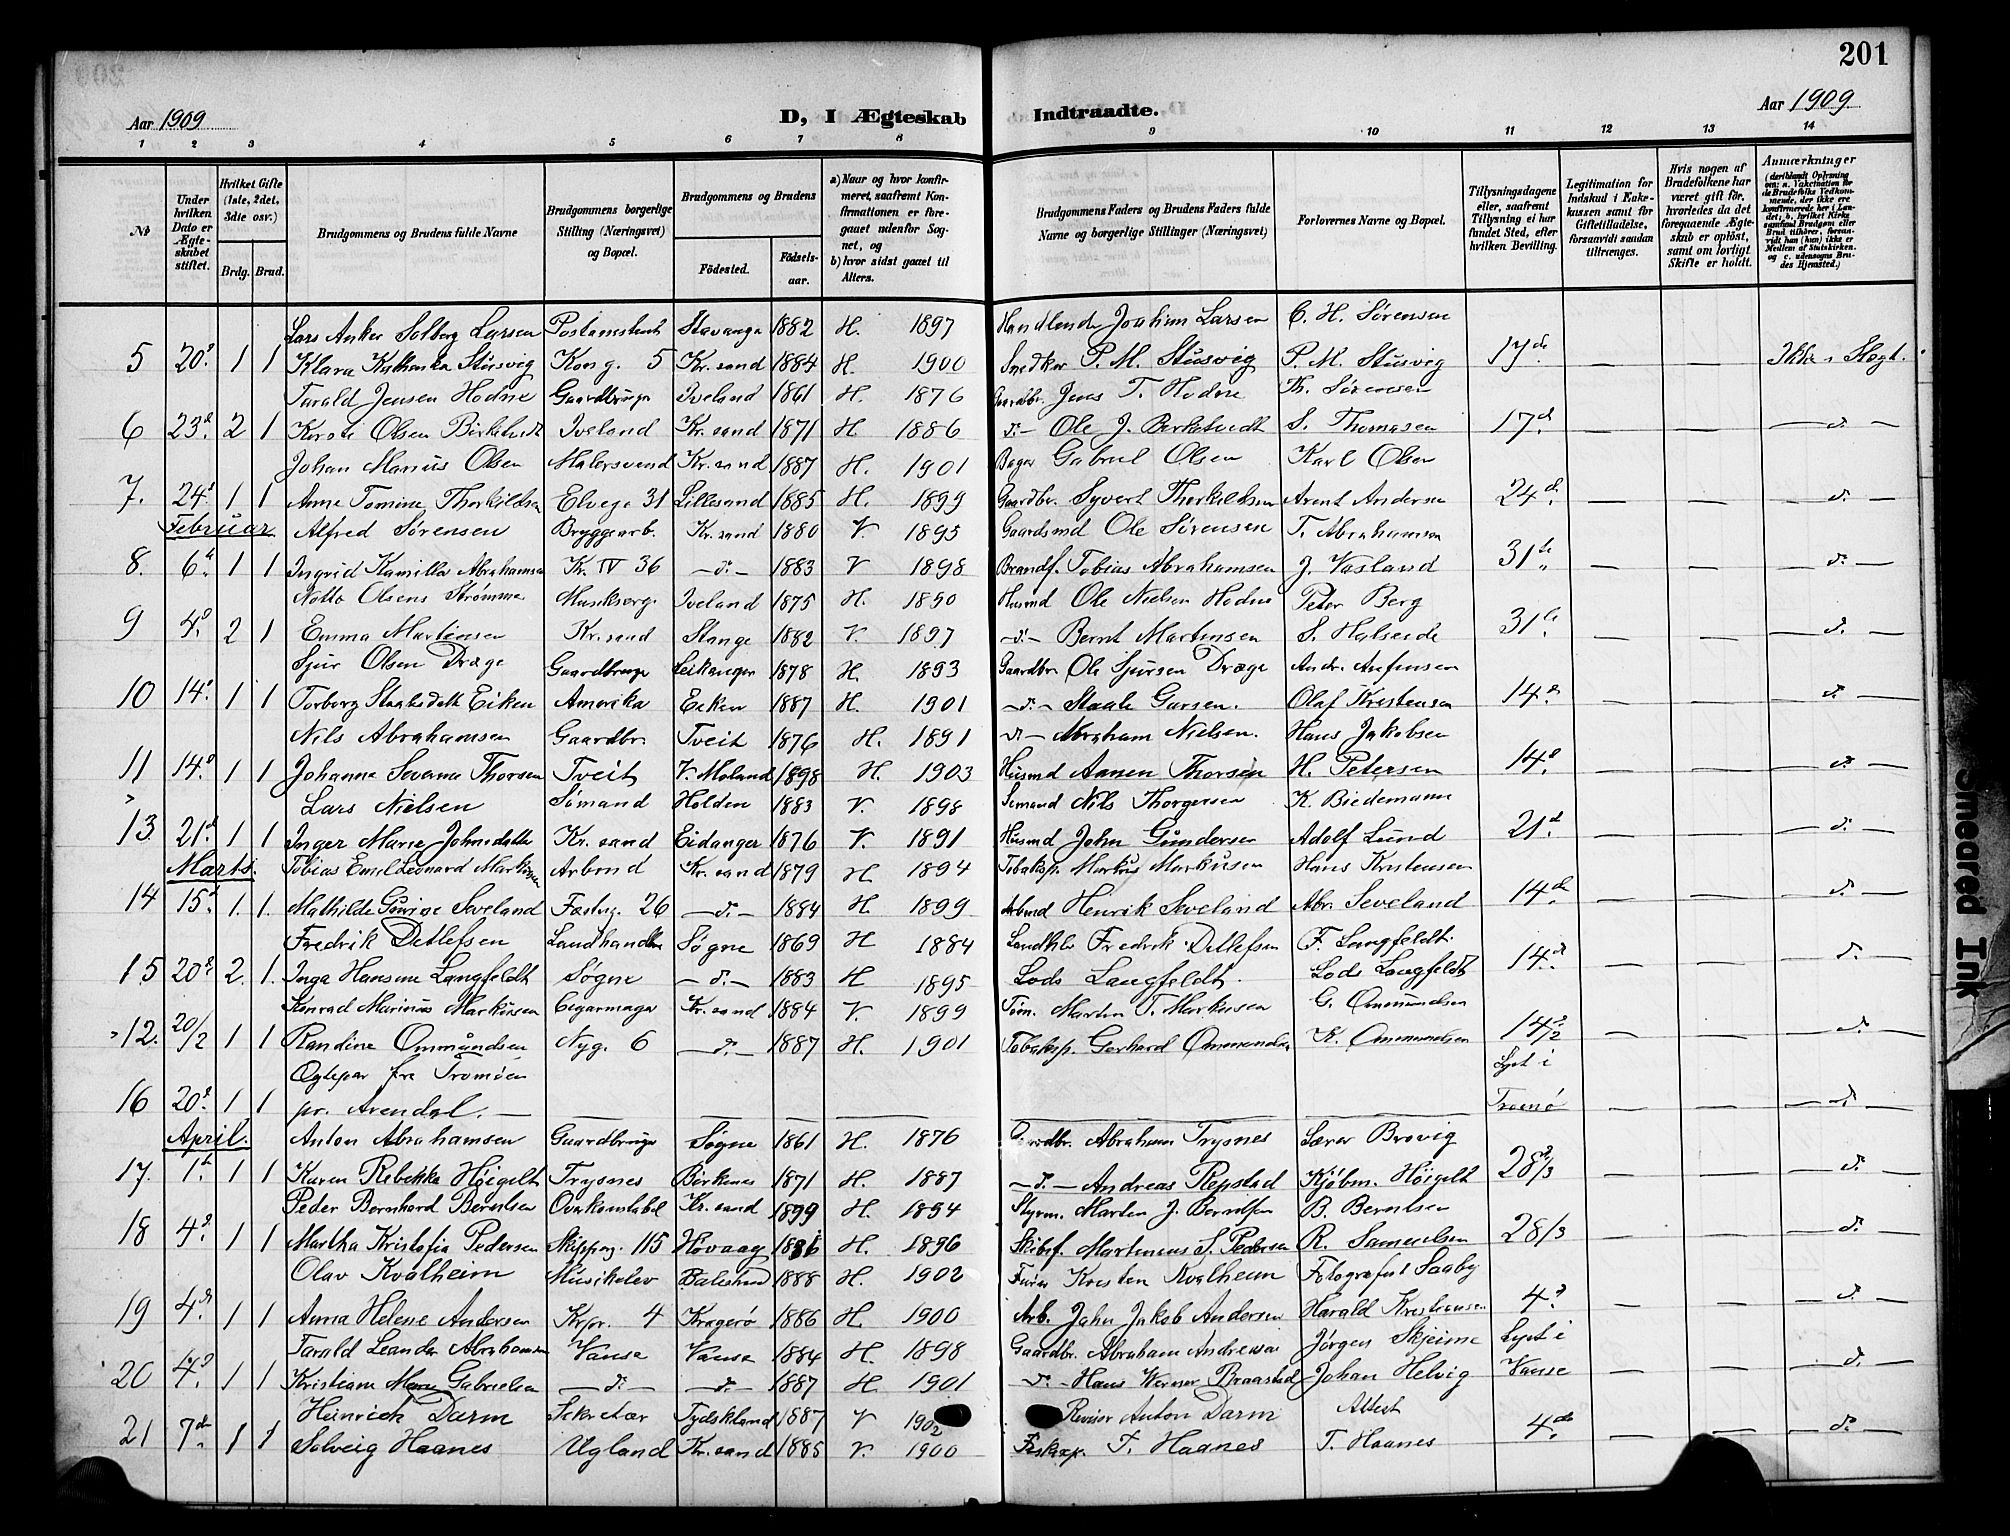 201
Aar 1909
D, I Ægteskab Indtraadte.
Aar 1909
1 2 3 4 5 6 7 8 9 10 11 12 13 14
No
Under hvilken Dato er Ægteskabet stiftet.
Hvilket Gifte (1ste, 2det, 3die osv.)
Brdg. Brud.
Brudgommens og Brudens fulde Navne
Brudgommens borgerlige Stilling (Næringsvei) og Bopæl.
Brudgommens og Brudens
Fødested.
Fødselsaar.
a) Naar og hvor konfirmeret, saafremt Konfirmationen er foregaaet udenfor Sognet, og
b) hvor sidst gaaet til Alters.
Brudgommens Faders og Brudens Faders fulde Navne og borgerlige Stillinger (Næringsvei)
Forlovernes Navne og Bopæl.
Tillysningsdagene eller, saafremt Tillysning ei har fundet Sted, efter hvilken Bevilling.
Legitimation for Indskud i Enkekassen samt for Giftetilladelse, forsaavidt saadan tiltrænges.
Hvis nogen af Brudefolkene har været gift før, hvorledes da det foregaaende Ægteskab er opløst, samt om lovligt Skifte er holdt.
Anmærkninger (deriblandt Oplysning om: a. Vakcination for de Brudefolks Vedkommende, der ikke ere konfirmerede her i Landet; b. hvilket Kirkesamfund Brudgom eller Brud tilhører, forsaavidt han (hun) ikke er Medlem af Statskirken, og c. udensogns Brudes Hjemsted.)
Lars Anker Solberg Larsen Postassistent Stavanger 1882 H. 1897 Handlende Joakim Larsen C. H. Sørensen
5 20d. 1 1 Klara Kathinka Stusvig Kong. 5 Kr.sand 1884 H. 1900 Snedker P. M. Stusvig P. M. Stusvig 17de — — Ikke i Slægt.
Tarald Jensen Hodne Gaardbruger Iveland 1861 H. 1876 Gaardbr. Jens T. Hodne Kr. Sørensen
6 23d. 2 1 Kirsti Olsen Birketvedt Iveland Kr.sand 1871 H. 1886 d.- Ole J. Berketvedt S. Thomasen 17d. — — d. —
Johan Marius Olsen Malersvend Kr.sand 1887 H. 1901 Bager Gabriel Olsen Karl Olsen
7. 24d. 1 1 Anne Tomine Thorkildsen Elvege 31 Lillesand 1885 H. 1899 Gaardbr. Syvert Thorkildsen Arent Andersen 24d. — — d.
Februar Alfred Sørensen Bryggearb. Kr.sand 1880 V. 1895 Gaardsmd Ole Sørensen T. Abrahamsen
8. 6te. 1 1 Ingrid Kamilla Abrahamsen Kr. IV 36 —d.— 1883 V 1898 Brandf. Tobias Abrahamsen J. Vasland 31te. — — d. —
Notto Olsens Strømme Musikserg. Iveland 1875 H. 1890 Husmd Ole Nielsen Hodne Peter Berg
9 4d. 2 1 Emma Martinsen Kr.sand Stange 1882 V. 1897 —d.— Bernt Martinsen S. Halseide 31te. — — d.
Sjur Olsen Dræge Gaardbruger Leikanger 1878 H. 1893 Gaardbr. Ole Sjursen Dræge Andr. Anfinsen
10 14d. 1 1 Torborg Staalesdatt. Eiken Amerika Eeken 1887 H. 1901 —d.— Staale Garsen. Olaf Kristensen 14d. — — d. —
Nils Abrahamsen Gaardbr. Tveit 1876 H. 1891 d.— Abraham Nielsen. Hans Jakobsen
11 14d. 1 1 Johanne Severine Thorsen Tveit V. Moland 1898 H. 1903 Husmd Aanen Thorsen H. Petersen 14d. — — d. —
Lars Nielsen Sømand Holden 1883 V. 1898 Sømand Nils Thorgersen K. Biedemann
13 21d. 1 1 Inger Marie Johnsdatter Kr.sand Eidanger 1876 V. 1891 Husmd John Gundersen Adolf Lund 21d. — — d. —
Marts. Tobias Emil Leonard Markusen Arbmd Kr.sand 1879 H 1894 Tobaksp. Markus Markusen Hans Kristensen
14 15d. 1. 1. Mathilde Gurine Seveland Festng. 26 —d.— 1884 H 1899 Arbmd Henrik Seveland Abr. Seveland 14de — — d. —
Fredrik Detlefsen Landhandler Søgne 1869 H 1884 Landhlr Fredrik Detlefsen F. Langfeldt.
15 20d. 2. 1. Inga Hansine Langfeldt Søgne —d.— 1883 H 1895 Lods Langfeldt. Lods Langfeldt 14d. — — d.
Konrad Marinius Markusen Cigarmager Kr.sand 1884 V. 1899 Tøm. Martin T. Markusen G. Ommundsen
12. 20/2 1 1 Randine Ommundsen Nyg. 6 —d.— 1887 H. 1901 Tobaksp. Gerhard Ommundsen K. Ommundsen 14/2 — — d. —
Ægtepar fra Tromøen Lyst i
16 20d. 1 1 pr. Arendal. — — — — — — — Tromø — — d. —
April. Anton Abrahamsen Gaardbruger Søgne 1861 H. 1876 Gaardbr. Abraham Trysnes Lærer Brovig
17. 1ste. 1 1 Karen Rebekka Høigelt Trysnes Birkenes 1871 H. 1887 —d.— Andreas Repstad Kjøbm. Høigelt 28/3 — — d. —
Peder Bernhard Berntsen Overkonstabel Kr.sand 1899 H. 1894 Styrm. Marten J. Berntsen B. Berntsen
18 4d. 1 1 Martha Kristofia Pedersen Skipperg. 115 Høvaag 1881 H. 1896 Skibsf. Martinius S. Pedersen R. Samuelsen 28/3 — — d. —
Olav Kvalheim Musikelev Balestrand 1888 H. 1902 Furer Kristen Kvalheim Fotografist Saaby
19 4d. 1 1 Anna Helene Andersen Krpr. 4 Kragerø 1886 H. 1900 Arb. Jahn Jakob Andersen Harald Kristiansen 4d. — — d. —
Tarald Leander Abrahamsen Vanse Vanse 1884 H. 1898 Gaardbr. Abraham Andreassen Jørgen Skjeime Lyst i
20 4d. 1 1 Kristiane Marie Gabrielsen —d.— —d.— 1887 H 1901 d.— Hans Werner Braastad Johan Helvig Vanse — — d. —
Heinrich Darm Sekretær Tydskland 1887 V 1902 Revisor Anton Darm Attest
21 7de. 1 1 Solveig Haanes Ugland Kr.sand 1885 V. 1900 Fiskeop. T. Haanes T. Haanes 4de. — — d. —
Smeared Ink